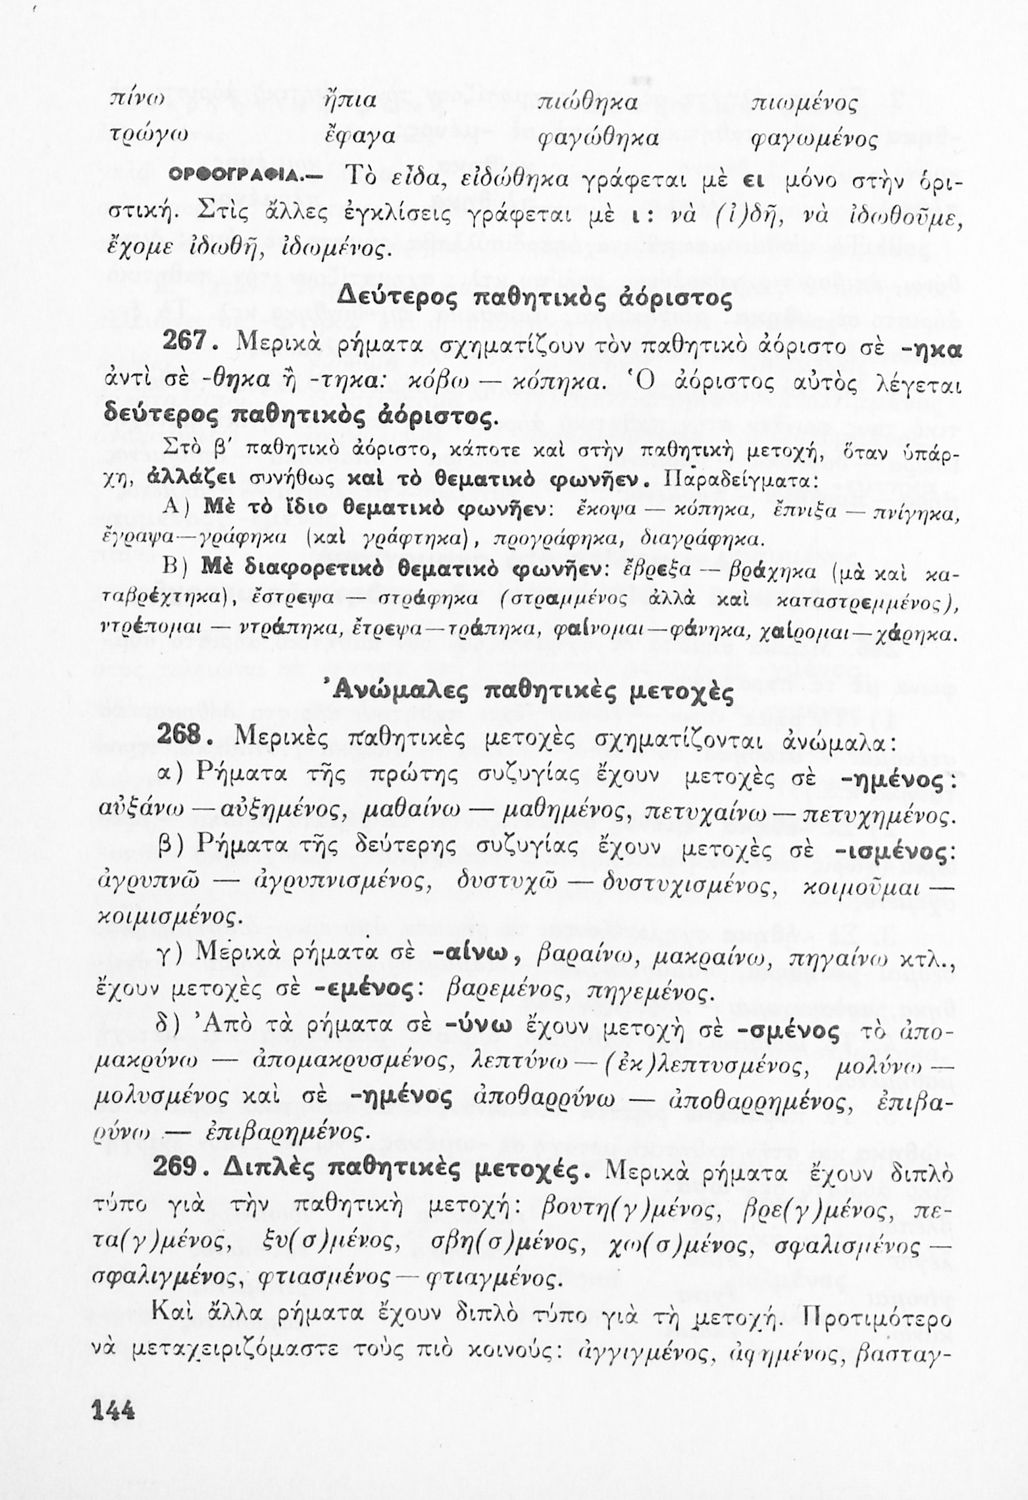 πίνω ἤπια πιώθηκα πιωμένος
τρώγω ἔφαγα φαγώθηκα φαγωμένος
ΟΡΘΟΓΡΑΦΙΑ.— Τὸ εἶδα, εἰδώθηκα γράφεται μὲ ει μόνο στὴν ὁρι-
στική. Στὶς ἄλλες ἐγκλίσεις γράφεται μὲ ι: νὰ (ἰ)δῆ, νὰ ἰδωθοῦμε,
ἔχομε ἰδωθῆ, ἰδωμένος.
Δεύτερος παθητικὸς ἀόριστος
267. Μερικὰ ρήματα σχηματίζουν τὸν παθητικὸ ἀόριστο σὲ -ηκα
ἀντὶ σὲ -θηκα ἢ -τηκα: κόβω — κόπηκα. Ὁ ἀόριστος αὐτὸς λέγεται
δεύτερος παθητικὸς ἀόριστος.
Στὸ β′ παθητικὸ ἀόριστο, κάποτε καὶ στὴν παθητικὴ μετοχή, ὅταν ὑπάρ-
χη, ἀλλάζει συνήθως καὶ τὸ θεματικὸ φωνῆεν. Παραδείγματα:
Α) Μὲ τὸ ἴδιο θεματικὸ φωνῆεν: ἔκοψα — κόπηκα, ἔπνιξα — πνίγηκα,
ἔγραψα—γράφηκα (καὶ γράφτηκα), προγράφηκα, διαγράφηκα.
Β) Μὲ διαφορετικὸ θεματικὸ φωνῆεν: ἔβρεξα — βράχηκα (μὰ καὶ κα-
ταβρέχτηκα), ἔστρεψα — στράφηκα (στραμμένος ἀλλὰ καὶ καταστρεμμένος),
ντρέπομαι — ντράπηκα, ἔτρεψα—τράπηκα, φαίνομαι—φάνηκα, χαίρομαι—χάρηκα.
Ἀνώμαλες παθητικὲς μετοχὲς
268. Μερικὲς παθητικὲς μετοχὲς σχηματίζονται ἀνώμαλα:
α) Ρήματα τῆς πρώτης συζυγίας ἔχουν μετοχὲς σὲ -ημένος:
αὐξάνω — αὐξημένος, μαθαίνω — μαθημένος, πετυχαίνω — πετυχημένος.
β) Ρήματα τῆς δεύτερης συζυγίας ἔχουν μετοχὲς σὲ -ισμένος:
ἀγρυπνῶ — ἀγρυπνισμένος, δυστυχῶ — δυστυχισμένος, κοιμοῦμαι —
κοιμισμένος.
γ) Μερικὰ ρήματα σὲ -αίνω, βαραίνω, μακραίνω, πηγαίνω κτλ.,
ἔχουν μετοχὲς σὲ -εμένος: βαρεμένος, πηγεμένος.
δ) Ἀπὸ τὰ ρήματα σὲ -ύνω ἔχουν μετοχὴ σὲ -σμένος τὸ ἀπο-
μακρύνω — ἀπομακρυσμένος, λεπτύνω — (ἐκ)λεπτυσμένος, μολύνω —
μολυσμένος καὶ σὲ -ημένος ἀποθαρρύνω — ἀποθαρρημένος, ἐπιβα-
ρύνω — ἐπιβαρημένος.
269. Διπλὲς παθητικὲς μετοχές. Μερικὰ ρήματα ἔχουν διπλὸ
τύπο γιὰ τὴν παθητικὴ μετοχή: βουτη(γ)μένος, βρε(γ)μένος, πε-
τα(γ)μένος, ξυ(σ)μένος, σβη(σ)μένος, χω(σ)μένος, σφαλισμένος —
σφαλιγμένος, φτιασμένος — φτιαγμένος.
Καὶ ἄλλα ρήματα ἔχουν διπλὸ τύπο γιὰ τὴ μετοχή. Προτιμότερο
νὰ μεταχειριζόμαστε τοὺς πιὸ κοινούς: ἀγγιγμένος, ἀφημένος, βασταγ-
144